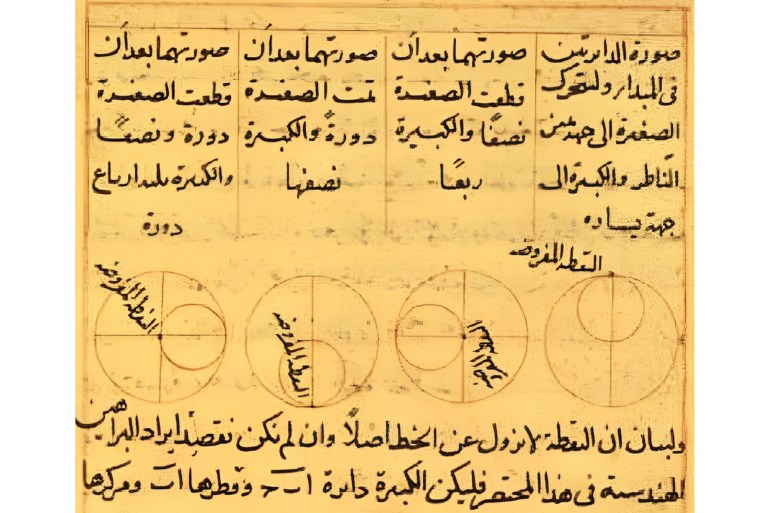 صورة الدايرتين
في المبدا وليتحرك
الصغيرة الى جهة يمين
الناظر والكبيرة الى
جهة يساره
صورتهما بعد ان
قطعت الصغيرة
نصفًا والكبيرة
ربعًا
صورتهما بعد ان
تمت الصغيرة
دورةً والكبيرة
نصفها
صورتهما بعد ان
قطعت الصغيرة
دورة ونصفًا
والكبيرة ثلثة ارباع
دورة
النقطة المفروضة
النقطة المفروضة
النقطة المفروضة
ولبيان ان النقطة لا تزول عن الخط اصلًا وان لم نكن نقصد ايراد البراهين
الهندسية في هذا المختصر فليكن الكبيرة دائرة وقطرها اب ومركزها